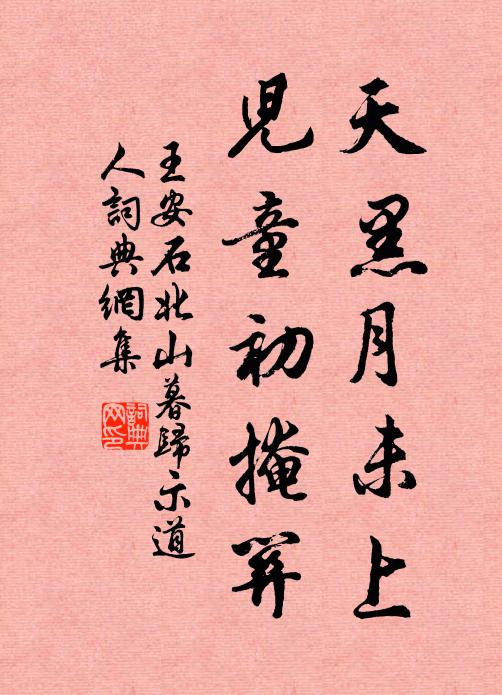 天黑月未上
兒童初掩關
王安石北山暮歸示道
人詞典網集
詞典
网印